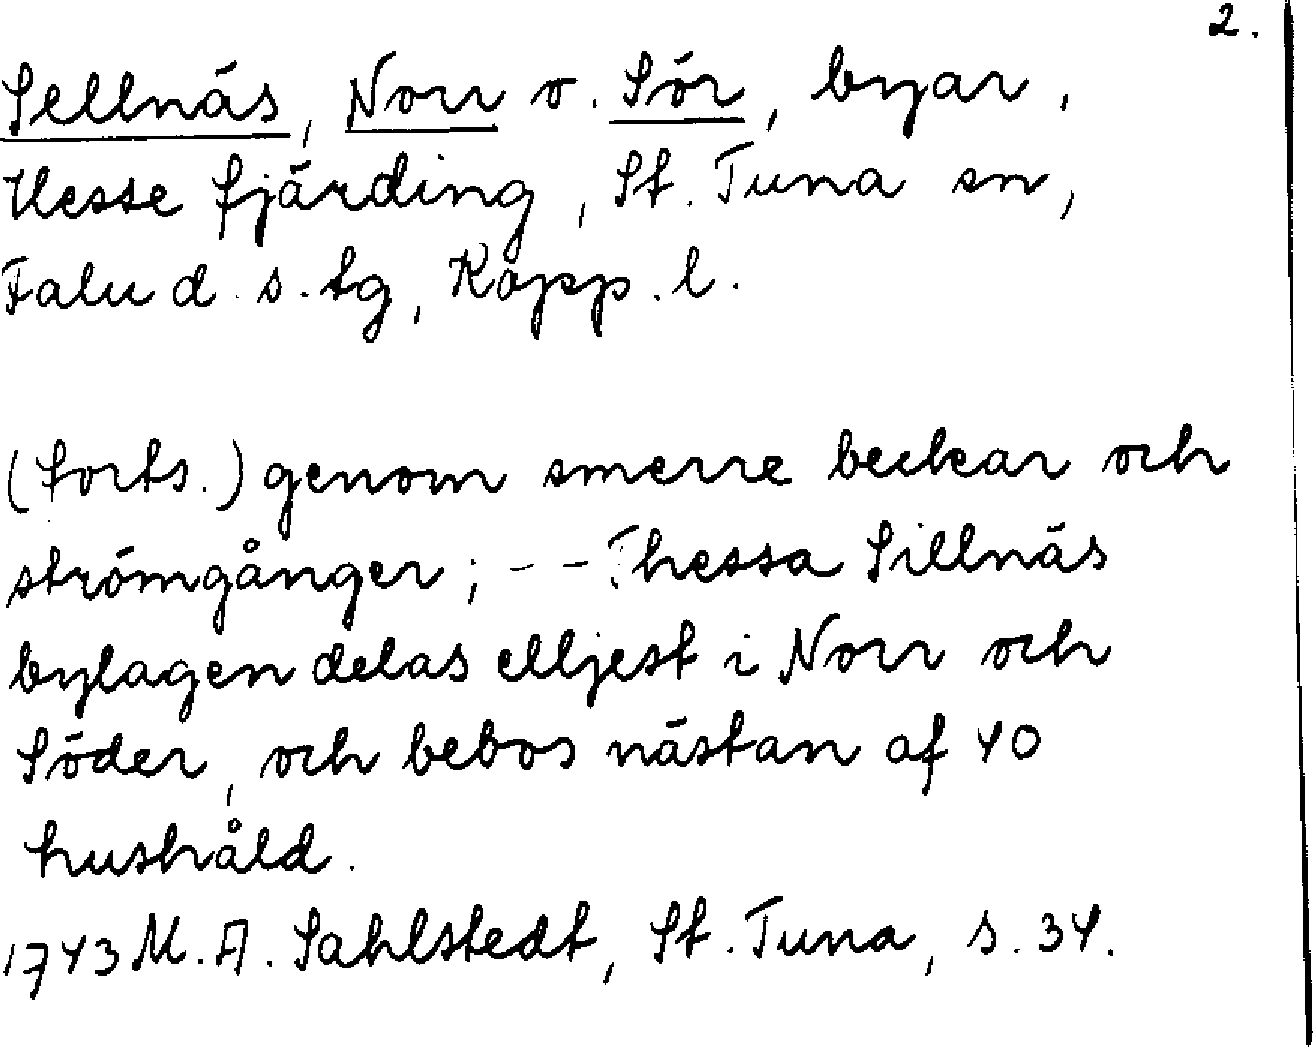 2.
Sellnäs, Norr o. Sör, byar,
Uesse fjärding, St. Tuna sn,
Falu d. s. tg, Kopp. l.
(forts.) genom smerre beckar och
strömgånger; -- Thessa Sillnäs
bylagen delas elljest i Norr och
Söder, och bebos nästan af 40
hushåld.
1743 M. A. Sahlstedt, St. Tuna, s. 34.